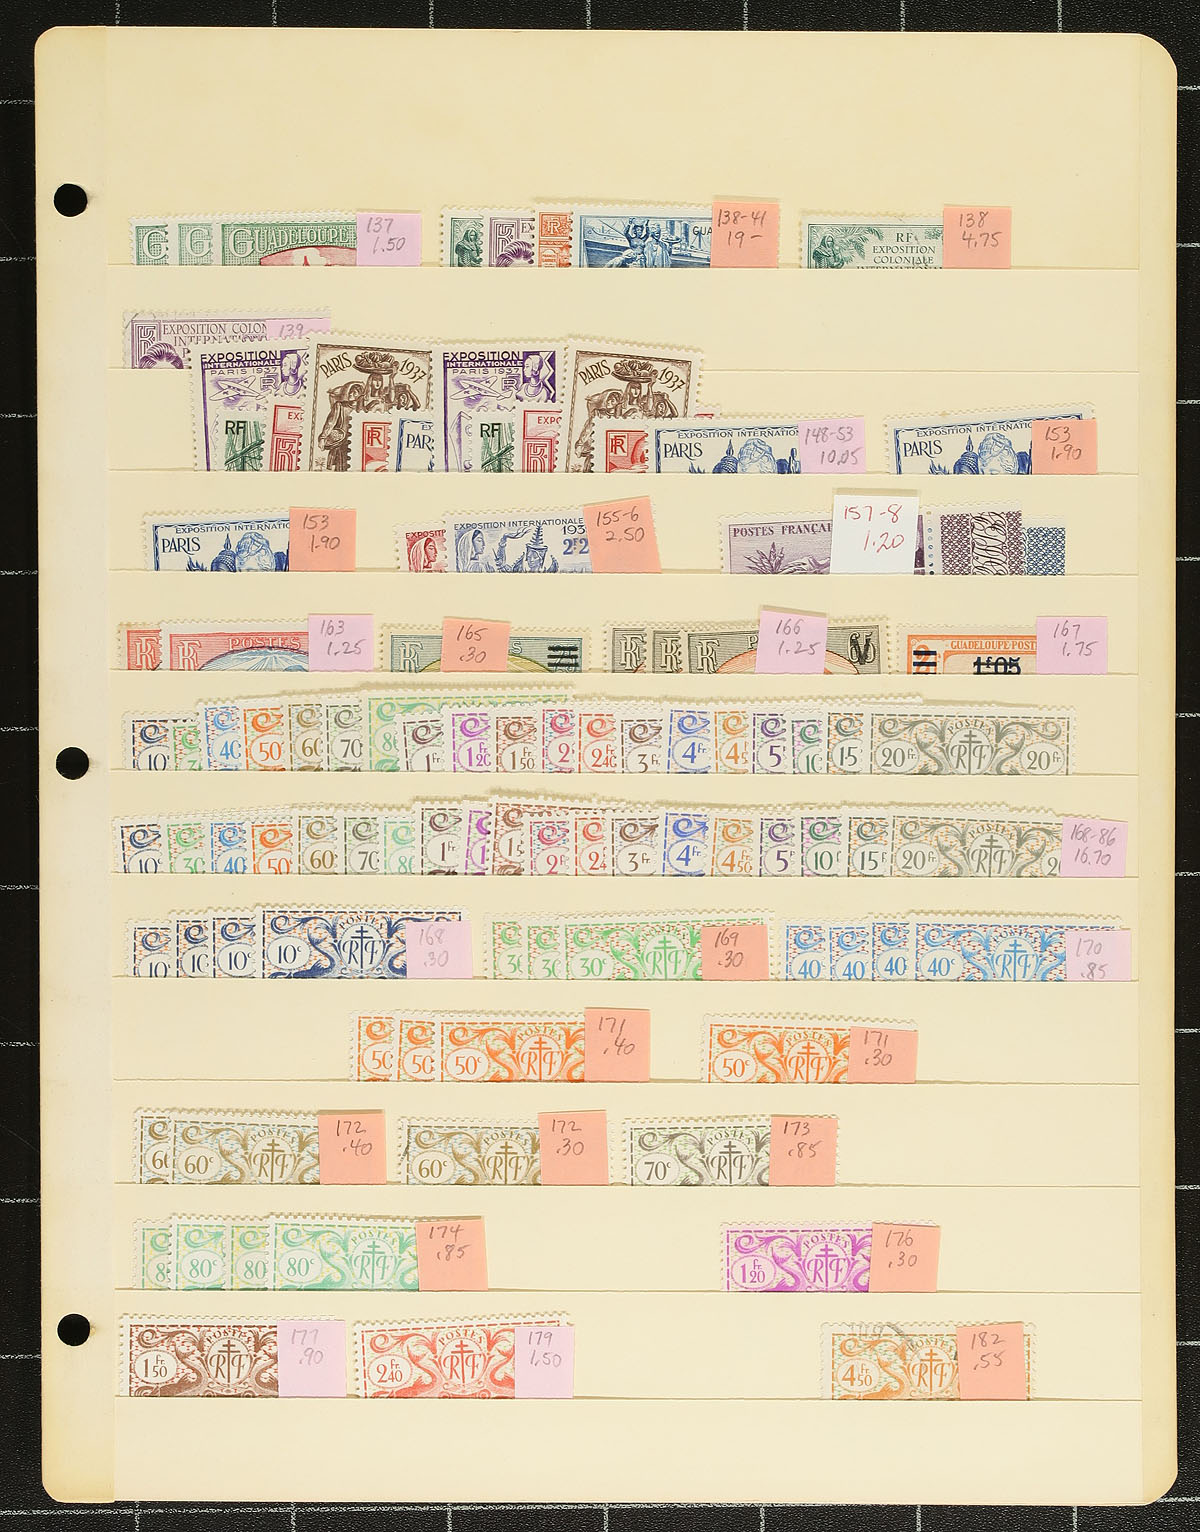 G
G
GUADELOUPE
137
1.50
EX
R
GUA
138-41
19-
RF
EXPOSITION
COLONIALE
INTERNATIONA
138
4.75
EXPOSITION COLON
INTERNAT
139
EXPOSITION
INTERNATIONALE
PARIS 1937
PARIS 1937
EXPOSITION
INTERNATIONALE
PARIS 1937
PARIS 1937
RF
EX
RF
PAR
RF
EXPO
RF
EXPOSITION INTERNATIO
PARIS
148-53
10.05
EXPOSITION INTERNATION
PARIS
153
1.90
EXPOSITION INTERNATIO
PARIS
153
1.90
EXPOSITI
EXPOSITION INTERNATIONALE
193
2F2
155-6
2.50
POSTES FRANÇAI
157-8
1.20
RF
RF
POSTES
163
1.25
RF
165
.30
RF
RF
RF
65
166
1.25
GUADELOUPE-POST
1f05
167
1.75
10
3
40
50
60
70
80
1 Fr
1 Fr 20
1 Fr 50
2
2 Fr 40
3 Fr
4 Fr
4 5
5
10
15
20 Fr
POSTES
RF
20 Fr
10c
30
40
50
60c
70
80
1 Fr
1
1 5
2 F
2 4
3 Fr
4 Fr
4 Fr 50
5 F
10c
15 F
20 Fr
POSTES
RF
20
168-86
16.70
10
10
10c
10c
POSTES
RF
168
.30
30
30
30c
POSTES
RF
169
.30
40
40
40
40c
POSTES
RF
170
.85
50
50
50c
POSTES
RF
171
.40
50c
POSTES
RF
171
.30
60
60c
POSTES
RF
172
.40
60c
POSTES
RF
172
.30
70c
POSTES
RF
173
.85
8
80c
80
80c
POSTES
RF
174
.85
1 Fr 20
POSTES
RF
176
.30
1 Fr 50
POSTES
RF
177
.90
2 Fr 40
POSTES
RF
179
1.50
4 Fr 50
POSTES
RF
182
.55